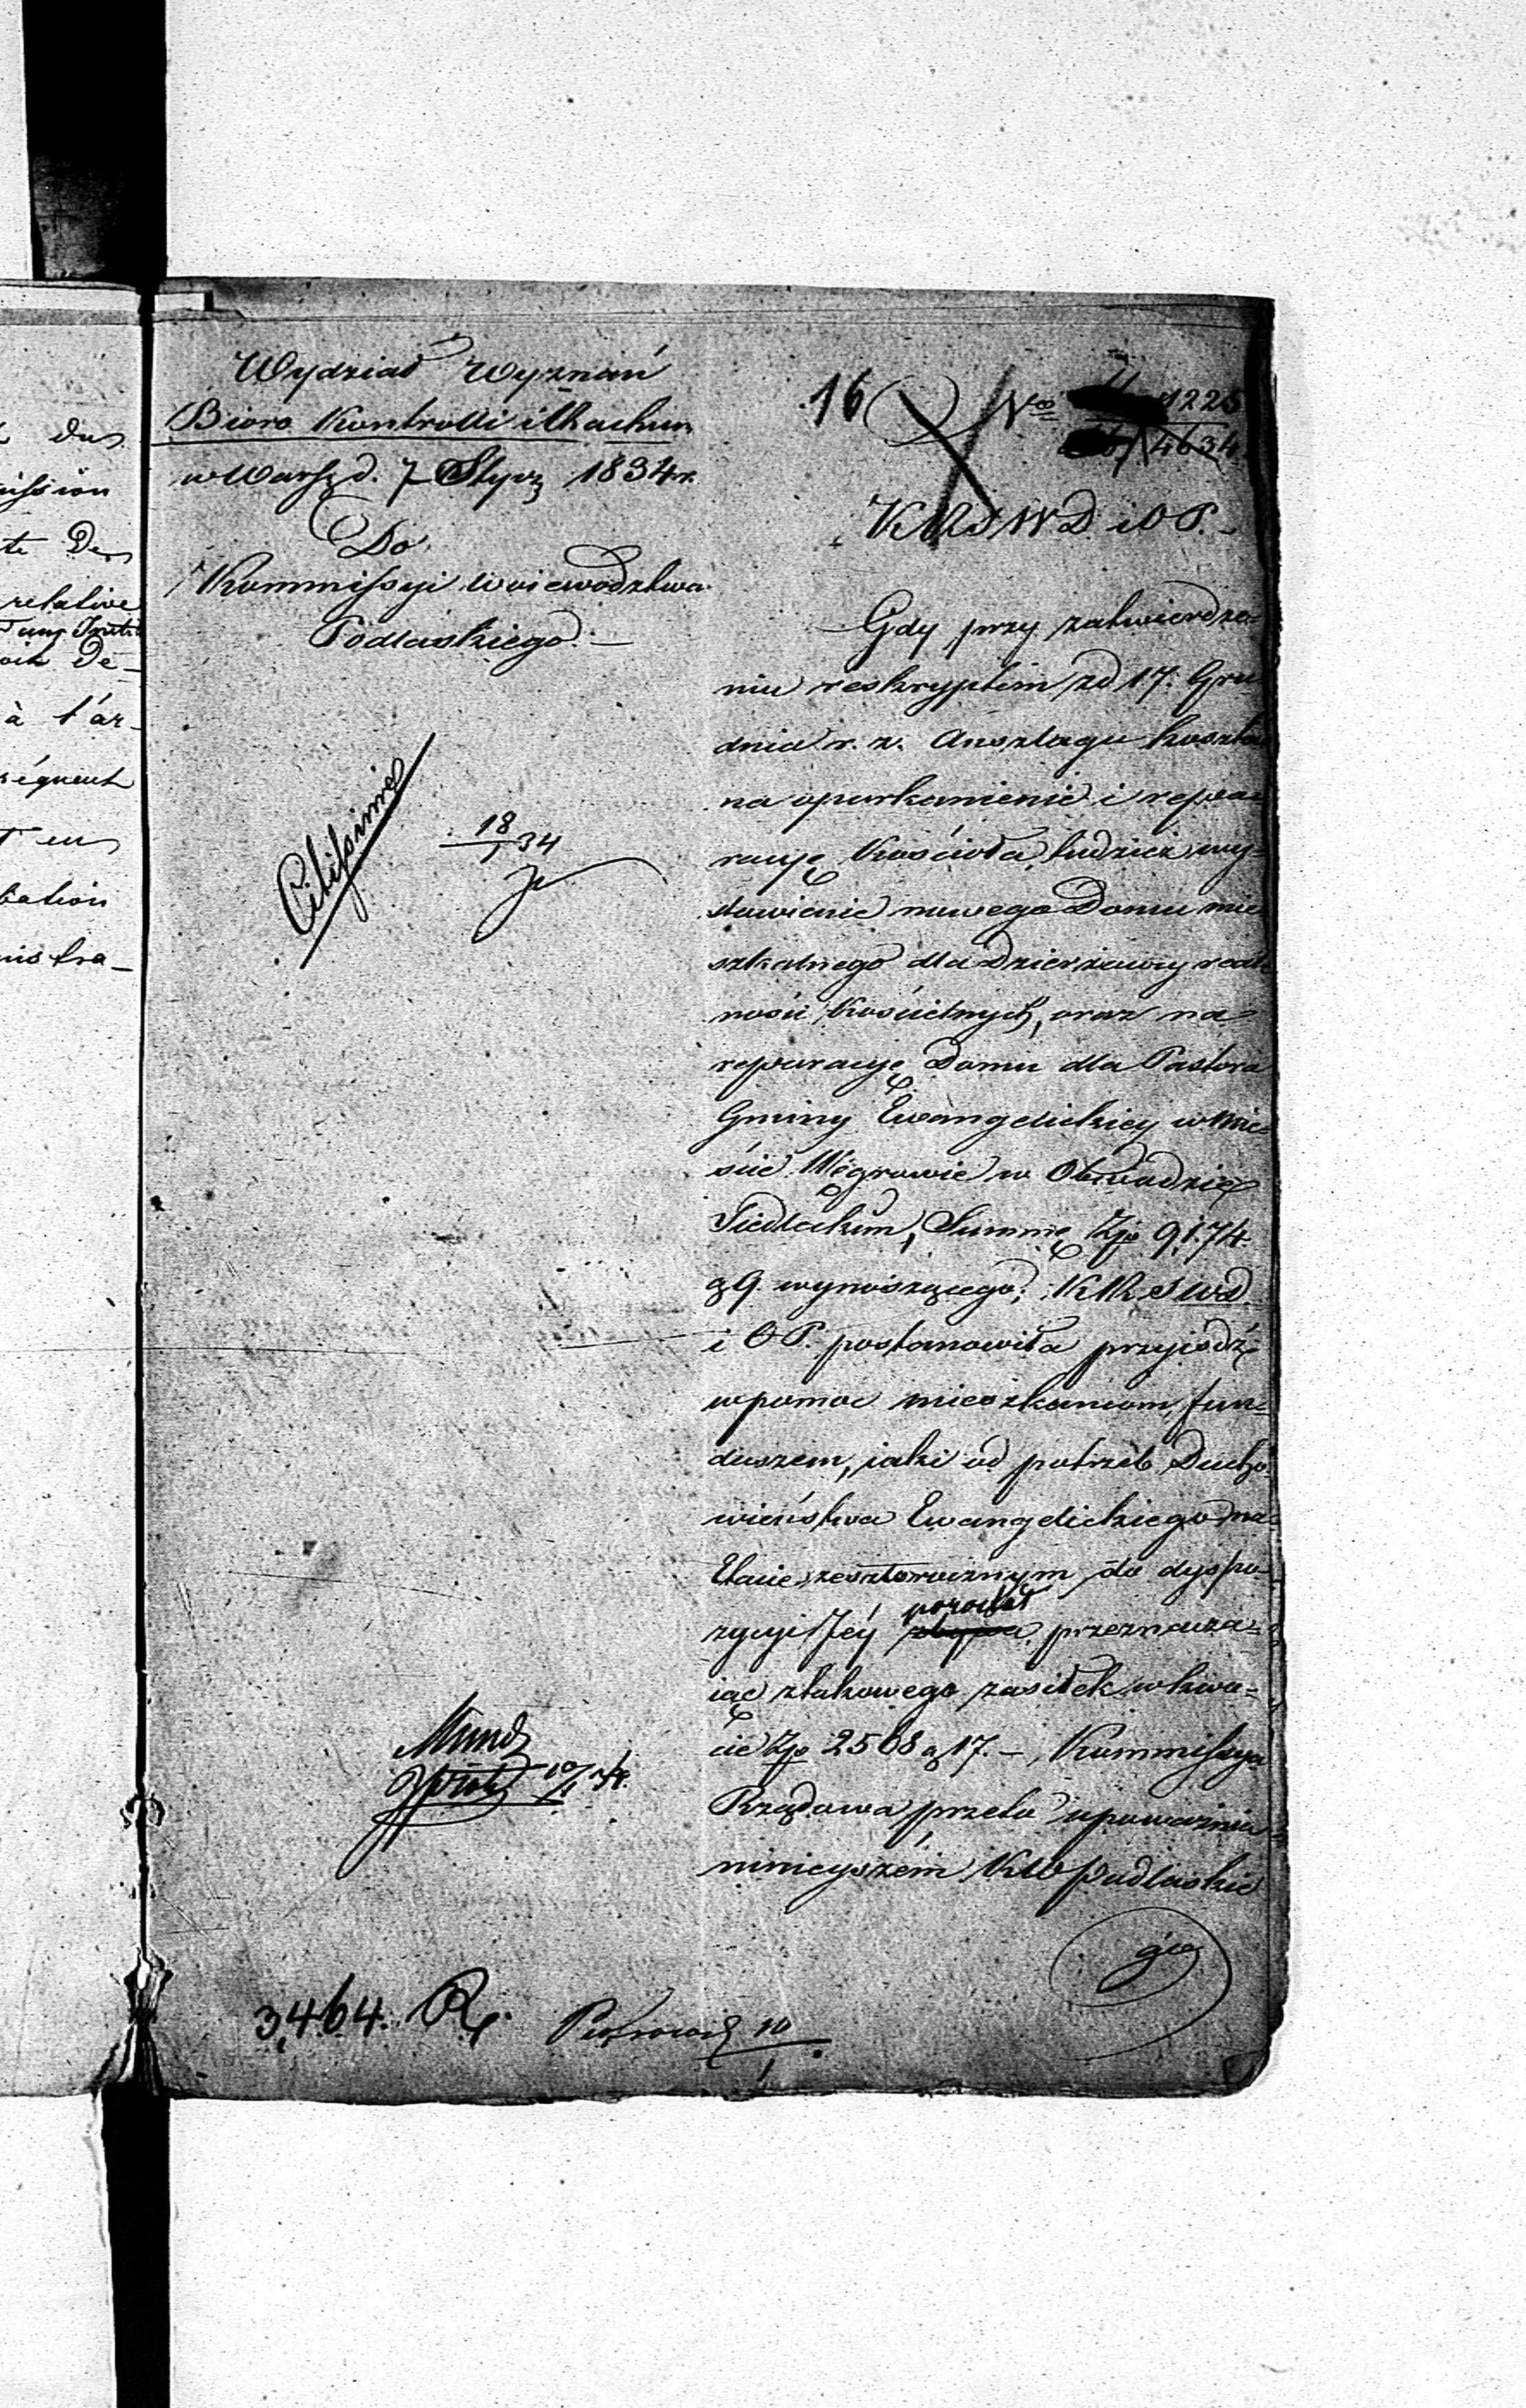 dus
ission
te Des
relative
d'une Instit
oit Dé-
à l'ar-
séquent
en
bation
nistra-
Wydział Wyznań
Bioro Kontrolli i Rachun
w Warsz d. 7 Stycz 1834 r.
Do
Kommissyi Woiewodztwa
Podlaskiego. —
Citissime
18/1 34
16
No 1225
4634
KRSWD. i OP. -
Gdy przy zatwierdze-
niu reskryptem z d 17. Gru
dnia r. z. Anszlagu kosztów
na oparkanienie i repa
racyę Kościoła, tudzież wy-
stawienie nowego Domu mie
szkalnego dla Dzierżawcy real
ności Kościelnych, oraz na
reparacyę Domu dla Pastora
Gminy Ewangelickiey w Mie-
ście Węgrowie w Obwodzie
Siedleckim, Summę Zp 9,174.
g 9. wynoszącego; KRSWD.
i OP. postanowiła przyjśdź
w pomoc mieszkańcom, fun-
duszem, iaki od potrzeb Ducho
wieństwa Ewangelickiego na
Etacie zeszłorocznym do dyspo-
zycyi Jéy pozostał przeznacza-
iąc z takowego zasiłek w kwo-
cie Zp 2568 g 17. —, Kommissya
Rządowa przeto upoważnia
ninieyszém KW Podlaskie
go
Mund
10/1 34.
3,464. R
10/1